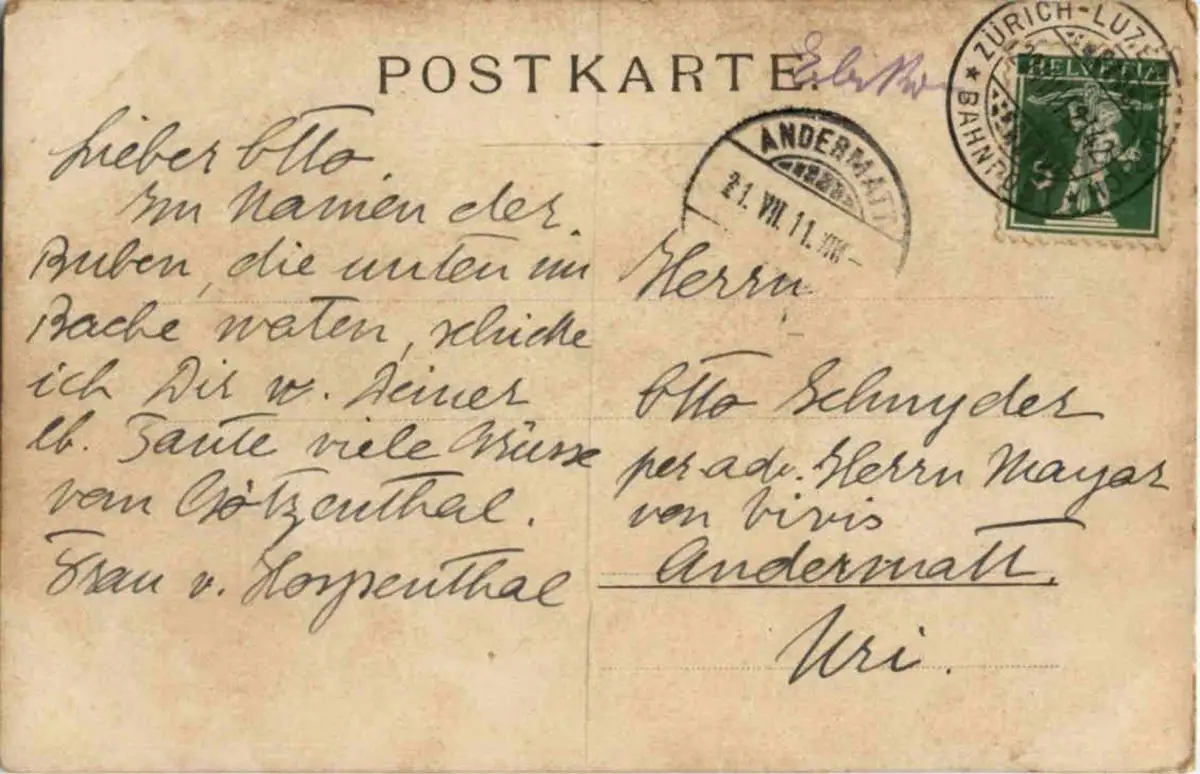 POSTKARTE.
ZÜRICH-LUZE
BAHNP
HELVETIA
5
ANDERMATT
21. VII. 11.
Lieber Otto.
Im Namen der
Buben, die unten im
Bache waten, schicke
ich Dir u. Deiner
lb. Tante viele Grüsse
vom Götzenthal.
Frau v. Hospenthal
Herrn
Otto Schnyder
per adr. Herrn Mayor
von Vivis
Andermatt.
Uri.